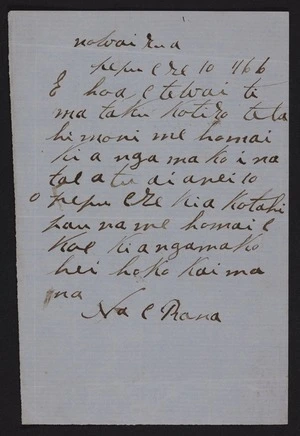 nowai rua
pepuere 10 466
E hoa e te wai te
ma taku kotiro te ta
hi moni me homai
ki a nga mako i na
tae a tu ai anei o
o pepuere kia kotahi
pauna me homai e
koe ki angamako
hei hoko kai ma
na
Na e Rana